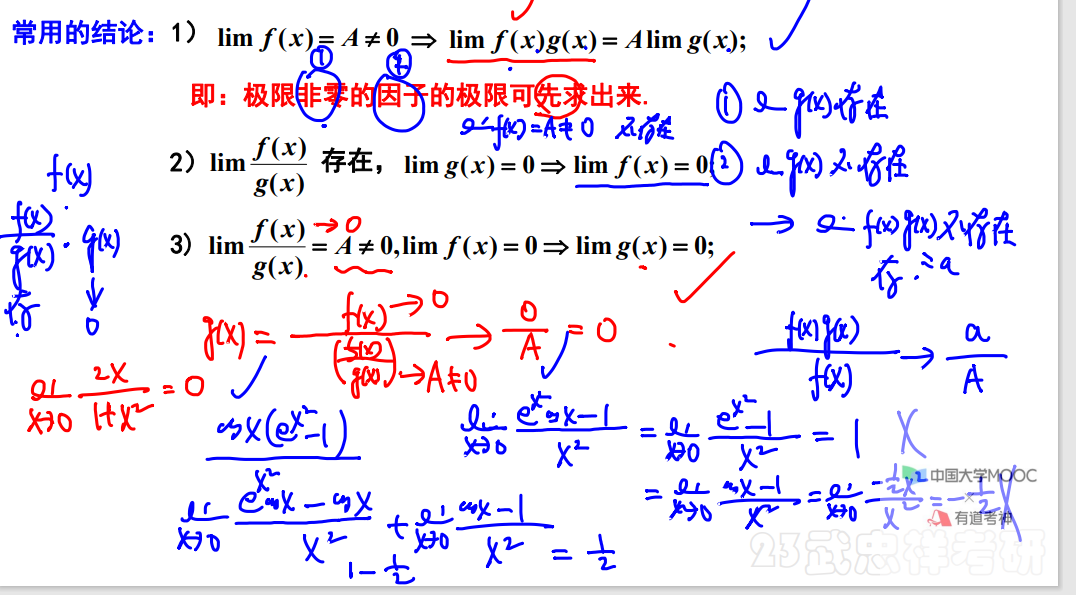 常用的结论：1） lim f(x) = A ≠ 0 ⇒ lim f(x)g(x) = A lim g(x);
① ②
即：极限非零的因子的极限可先求出来.
lim f(x) = A ≠ 0 不存在
① lim g(x) 存在
2）lim f(x)/g(x) 存在， lim g(x) = 0 ⇒ lim f(x) = 0
② lim g(x) 不存在
→ lim f(x)g(x) 不存在
存 = a
f(x)
f(x)/g(x) · g(x)
存 ↓ 0
3）lim f(x)/g(x) = A ≠ 0, lim f(x) = 0 ⇒ lim g(x) = 0;
→ 0
g(x) = f(x) → 0 / (f(x)/g(x)) → A ≠ 0 → 0/A = 0
f(x)g(x)/f(x) → a/A
lim x→0 2x/(1+x²) = 0
cos x(e^x² − 1)
lim x→0 (e^x² cos x − 1)/x² = lim x→0 (e^x² − 1)/x² = 1 X
= lim x→0 (cos x − 1)/x² = lim x→0 (−½x²)/x² = −½ X
lim x→0 (e^x² cos x − cos x)/x² + lim x→0 (cos x − 1)/x² = ½
1 − ½
中国大学MOOC
×
有道考神
23武忠祥考研